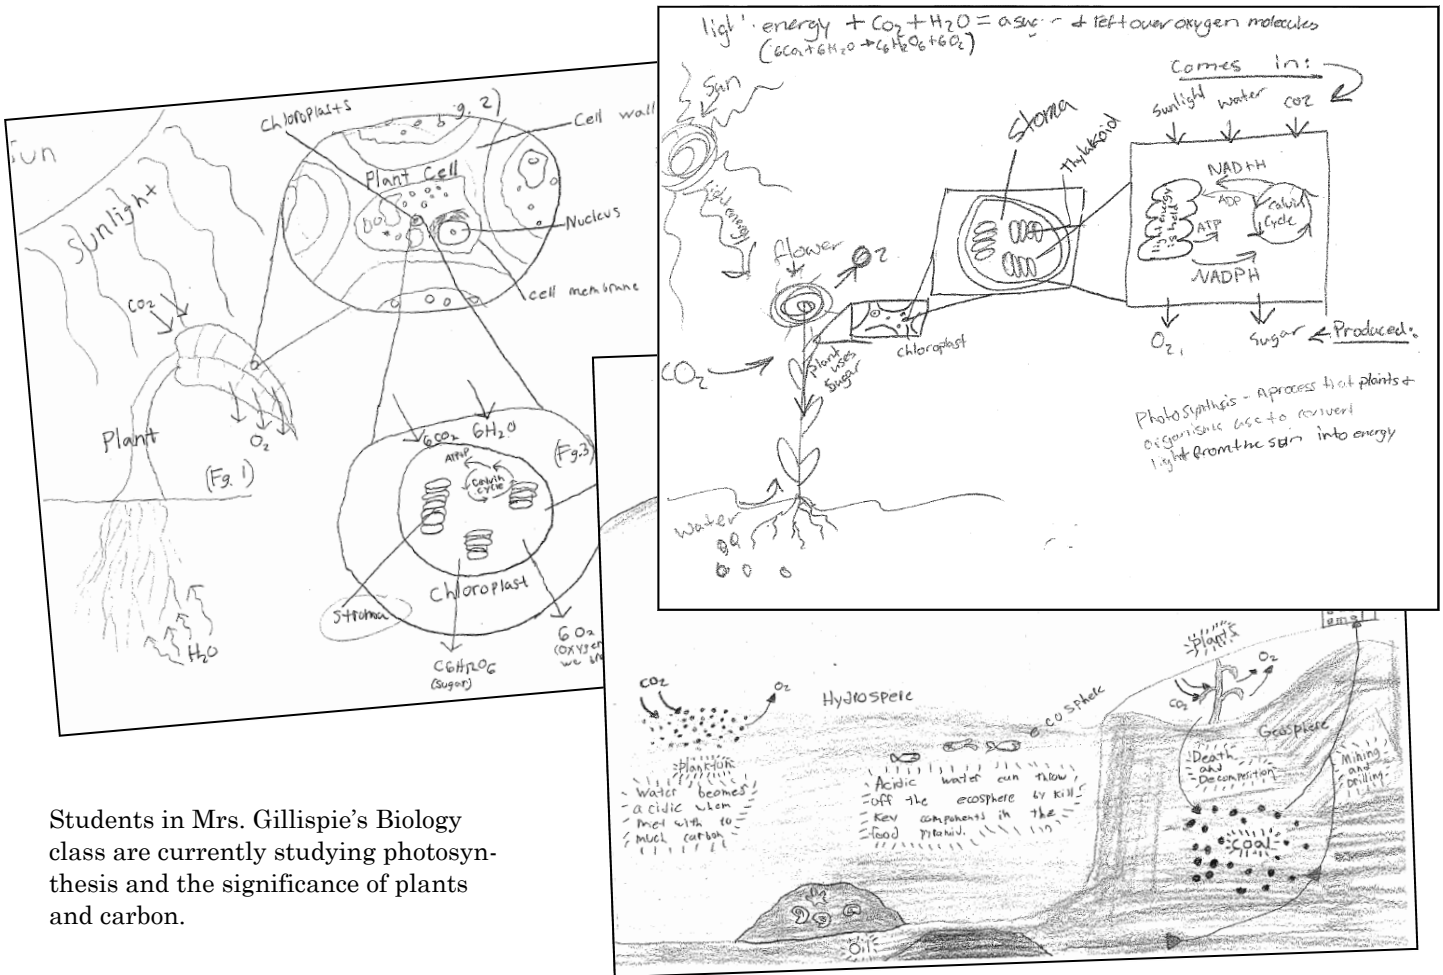 Sunlight
CO2
Plant
O2
(Fg. 1)
H2O
Chloroplasts
g. 2)
Cell wall
Plant Cell
Nucleus
cell membrane
6CO2
6H2O
(Fg.3)
Calvin
cycle
Chloroplast
Stroma
C6H12O6
(sugar)
6O2
energy + CO2 + H2O = a
leftover oxygen molecules
(6CO2+6H2O→C6H12O6+6O2)
Sun
light energy
flower
O2
CO2
plant
uses
sugar
chloroplast
Water
Stoma
thylakoid
Comes in:
Sunlight
water
CO2
NAD+H
ADP
Calvin
Cycle
light energy
is held
ATP
NADPH
O2
Sugar
Produced:
Photosynthesis - A process that plants +
organisms use to convert
light from the sun into energy
CO2
O2
Hydrospere
Plants
O2
CO2
Geosphere
Water becomes
acidic when
met with to
much carbon
Acidic water can throw
off the ecosphere by kill
key components in the
food piramid.
Death
and
Decomposition
Mining
and
Drilling
coal
Oil
Students in Mrs. Gillispie’s Biology
class are currently studying photosyn-
thesis and the significance of plants
and carbon.